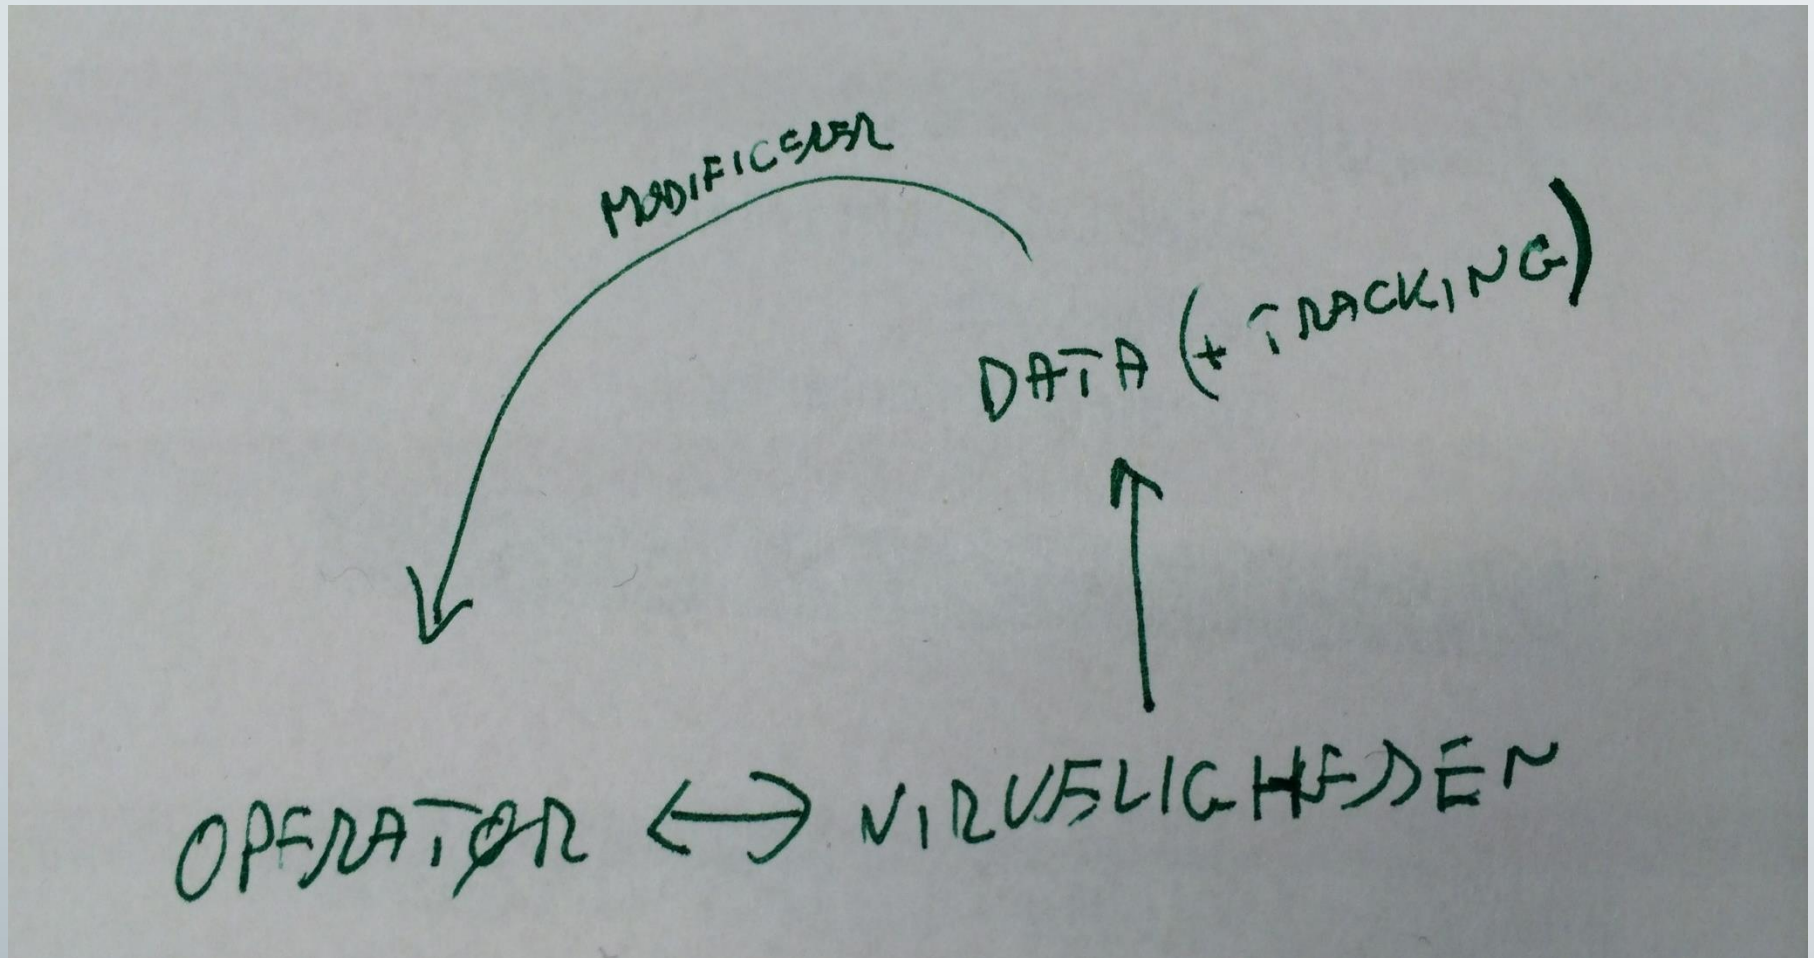 MODIFICERER
DATA (+ TRACKING)
OPERATØR ↔ VIRVELIGHEDDEN